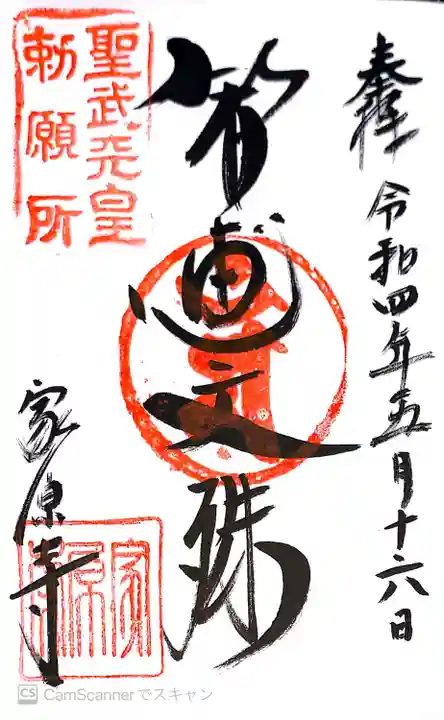 奉拝 令和四年五月十六日
智恵文殊
聖武天皇
勅願所
家原寺
家原寺
CS CamScannerでスキャン